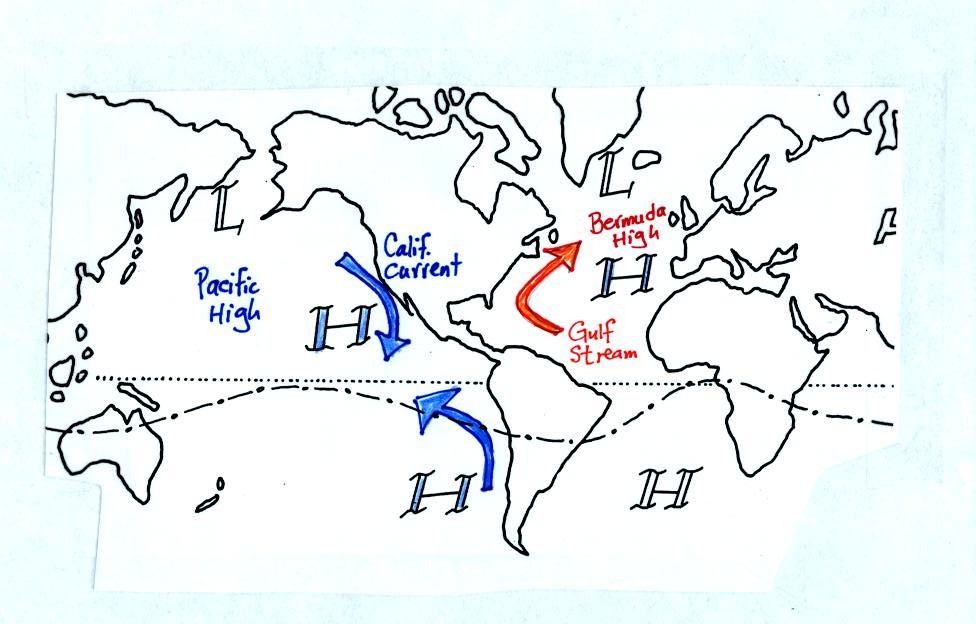 L
L
Bermuda
High
Calif.
Current
H
Pacific
High
H
Gulf
Stream
H
H